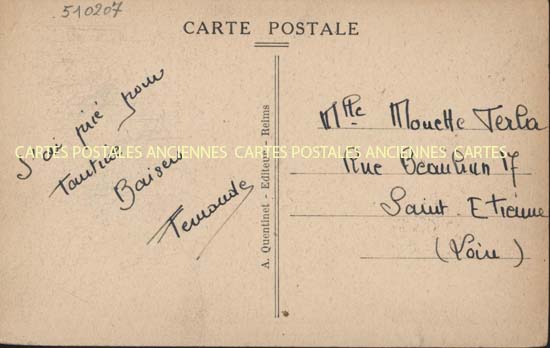 510207
CARTE POSTALE
J'ai prié pour
Tantine
Baisers
Fernande
A. Quentinet - Editeur - Reims
Mlle Mouette Terla
Rue Beaubrun 17
Saint Etienne
(Loire)
CARTES POSTALES ANCIENNES CARTES POSTALES ANCIENNES CARTES POSTALES ANCIENNES